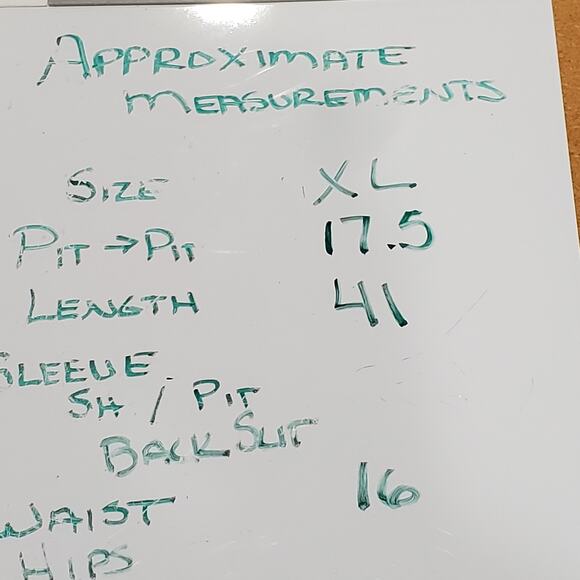 APPROXIMATE
MEASUREMENTS
SIZE XL
PIT → PIT 17.5
LENGTH 41
SLEEVE
SH / PIT
BACK SLIT
WAIST 16
HIPS